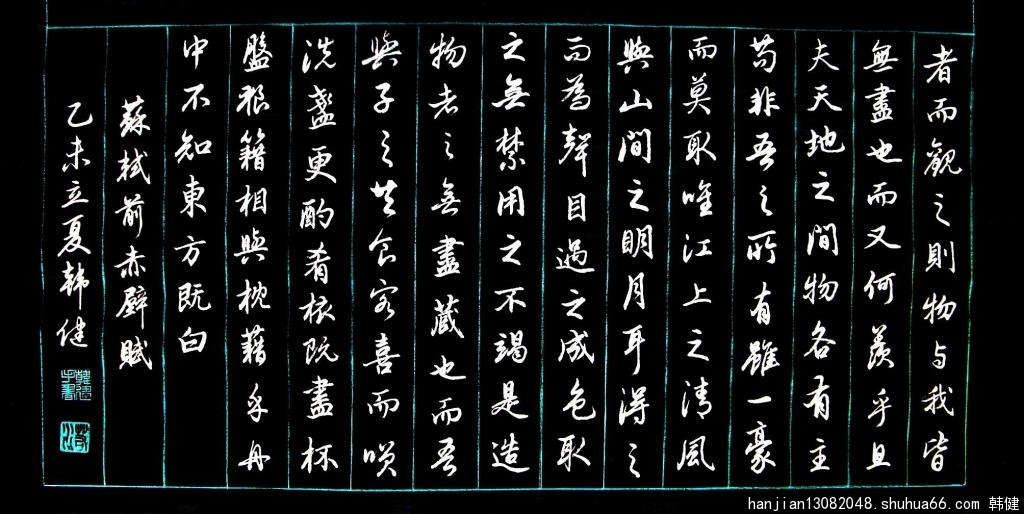 者而觀之則物与我皆
無盡也而又何羨乎且
夫天地之間物各有主
苟非吾之所有雖一豪
而莫取唯江上之清風
與山間之明月耳得之
而為聲目過之成色取
之無禁用之不竭是造
物者之無盡藏也而吾
與子之共食客喜而咲
洗盞更酌肴核既盡杯
盤狼籍相與枕藉乎舟
中不知東方既白
蘇軾前赤壁賦
乙未立夏韩健
hanjian13082048.shuhua66.com 韩健